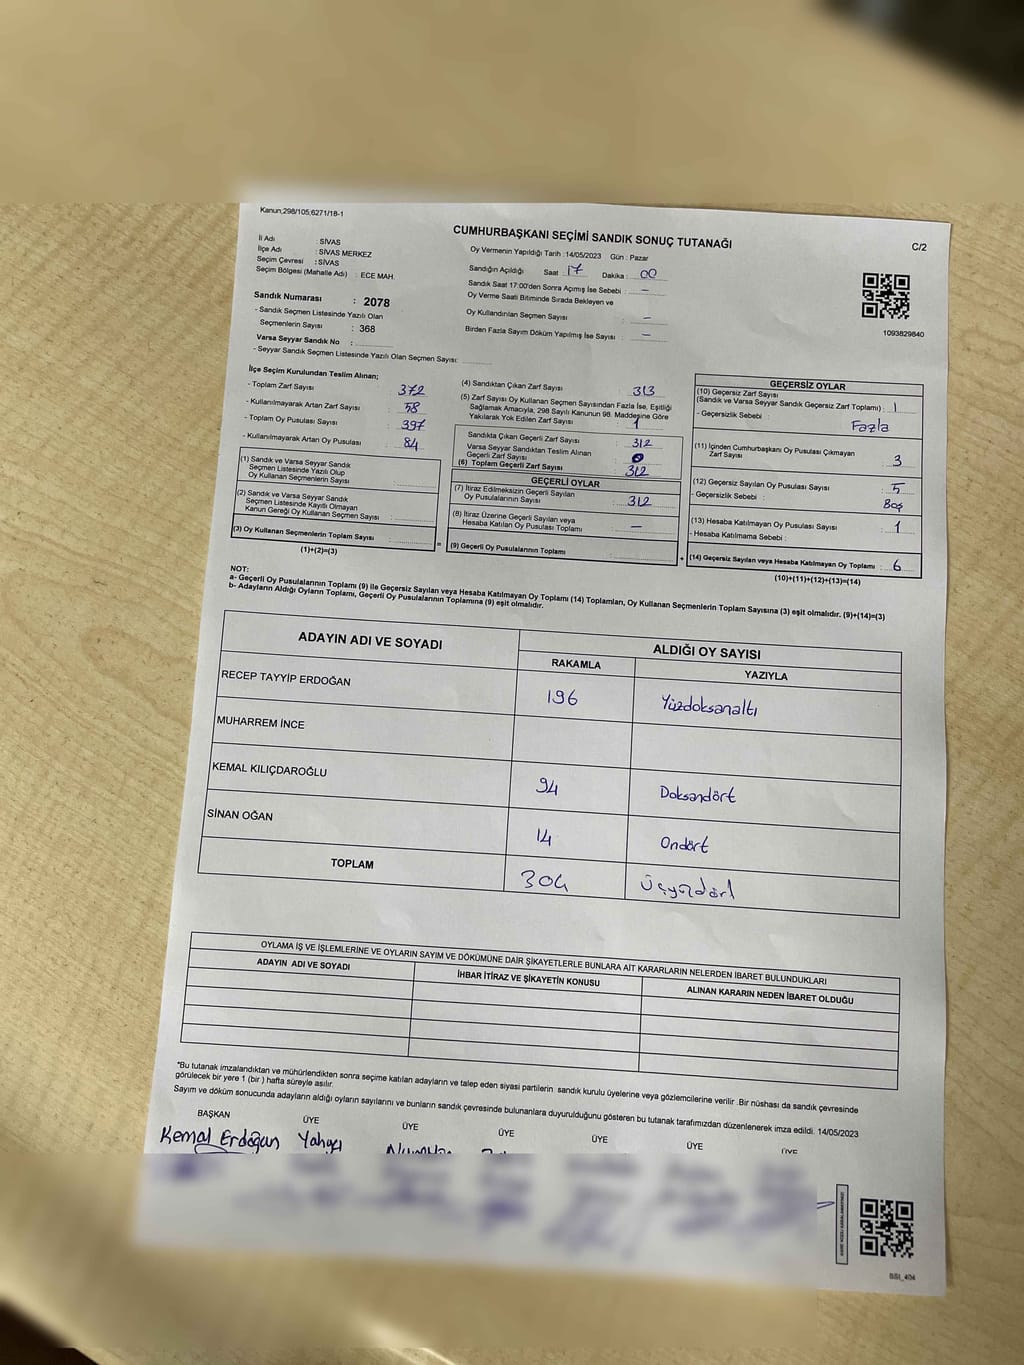 Kanun;298/105,6271/18-1
CUMHURBAŞKANI SEÇİMİ SANDIK SONUÇ TUTANAĞI
C/2
İl Adı : SİVAS
İlçe Adı : SİVAS MERKEZ
Seçim Çevresi : SİVAS
Seçim Bölgesi (Mahalle Adı) : ECE MAH.
Oy Vermenin Yapıldığı Tarih :14/05/2023 Gün : Pazar
Sandığın Açıldığı Saat : 17 Dakika : 00
Sandık Saat 17:00'den Sonra Açımış İse Sebebi : -
Oy Verme Saati Bitiminde Sırada Bekleyen ve
Oy Kullandırılan Seçmen Sayısı : -
Birden Fazla Sayım Döküm Yapılmış İse Sayısı : -
1093829840
Sandık Numarası : 2078
- Sandık Seçmen Listesinde Yazılı Olan
Seçmenlerin Sayısı : 368
Varsa Seyyar Sandık No :
- Seyyar Sandık Seçmen Listesinde Yazılı Olan Seçmen Sayısı:
İlçe Seçim Kurulundan Teslim Alınan;
- Toplam Zarf Sayısı 372
- Kullanılmayarak Artan Zarf Sayısı 58
- Toplam Oy Pusulası Sayısı 397
- Kullanılmayarak Artan Oy Pusulası 84
(1) Sandık ve Varsa Seyyar Sandık
Seçmen Listesinde Yazılı Olup
Oy Kullanan Seçmenlerin Sayısı :
(2) Sandık ve Varsa Seyyar Sandık
Seçmen Listesinde Kayıtlı Olmayan
Kanun Gereği Oy Kullanan Seçmen Sayısı :
(3) Oy Kullanan Seçmenlerin Toplam Sayısı :
(1)+(2)=(3)
=
(4) Sandıktan Çıkan Zarf Sayısı : 313
(5) Zarf Sayısı Oy Kullanan Seçmen Sayısından Fazla İse, Eşitliği
Sağlamak Amacıyla, 298 Sayılı Kanunun 98. Maddesine Göre
Yakılarak Yok Edilen Zarf Sayısı : 1
Sandıkta Çıkan Geçerli Zarf Sayısı : 312
Varsa Seyyar Sandıktan Teslim Alınan
Geçerli Zarf Sayısı : 0
(6) Toplam Geçerli Zarf Sayısı : 312
GEÇERLİ OYLAR
(7) İtiraz Edilmeksizin Geçerli Sayılan
Oy Pusulalarının Sayısı : 312
(8) İtiraz Üzerine Geçerli Sayılan veya
Hesaba Katılan Oy Pusulası Toplamı : -
(9) Geçerli Oy Pusulalarının Toplamı
+
GEÇERSİZ OYLAR
(10) Geçersiz Zarf Sayısı
(Sandık ve Varsa Seyyar Sandık Geçersiz Zarf Toplamı) : 1
- Geçersizlik Sebebi : Fazla
(11) İçinden Cumhurbaşkanı Oy Pusulası Çıkmayan
Zarf Sayısı 3
(12) Geçersiz Sayılan Oy Pusulası Sayısı : 5
- Geçersizlik Sebebi : Boş
(13) Hesaba Katılmayan Oy Pusulası Sayısı : 1
- Hesaba Katılmama Sebebi :
(14) Geçersiz Sayılan veya Hesaba Katılmayan Oy Toplamı : 6
(10)+(11)+(12)+(13)=(14)
NOT:
a- Geçerli Oy Pusulalarının Toplamı (9) ile Geçersiz Sayılan veya Hesaba Katılmayan Oy Toplamı (14) Toplamları, Oy Kullanan Seçmenlerin Toplam Sayısına (3) eşit olmalıdır. (9)+(14)=(3)
b- Adayların Aldığı Oyların Toplamı, Geçerli Oy Pusulalarının Toplamına (9) eşit olmalıdır.
ADAYIN ADI VE SOYADI
ALDIĞI OY SAYISI
RAKAMLA YAZIYLA
RECEP TAYYİP ERDOĞAN 196 Yüzdoksanaltı
MUHARREM İNCE
KEMAL KILIÇDAROĞLU 94 Doksandört
SİNAN OĞAN 14 Ondört
TOPLAM 304 Üçyüzdört
OYLAMA İŞ VE İŞLEMLERİNE VE OYLARIN SAYIM VE DÖKÜMÜNE DAİR ŞİKAYETLERLE BUNLARA AİT KARARLARIN NELERDEN İBARET BULUNDUKLARI
ADAYIN ADI VE SOYADI İHBAR İTİRAZ VE ŞİKAYETİN KONUSU ALINAN KARARIN NEDEN İBARET OLDUĞU
*Bu tutanak imzalandıktan ve mühürlendikten sonra seçime katılan adayların ve talep eden siyasi partilerin sandık kurulu üyelerine veya gözlemcilerine verilir .Bir nüshası da sandık çevresinde
görülecek bir yere 1 (bir ) hafta süreyle asılır.
Sayım ve döküm sonucunda adayların aldığı oyların sayılarını ve bunların sandık çevresinde bulunanlara duyurulduğunu gösteren bu tutanak tarafımızdan düzenlenerek imza edildi. 14/05/2023
BAŞKAN ÜYE ÜYE ÜYE ÜYE ÜYE ÜYE
Kemal Erdoğan